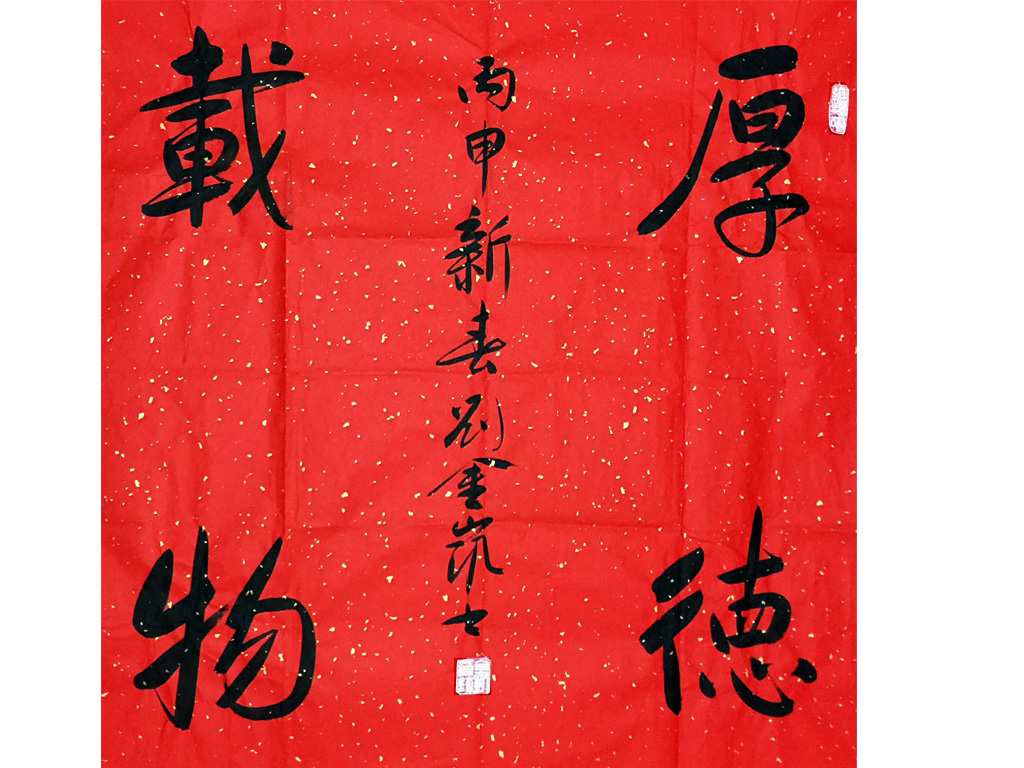 厚德
載物
丙申新春刘金凯书